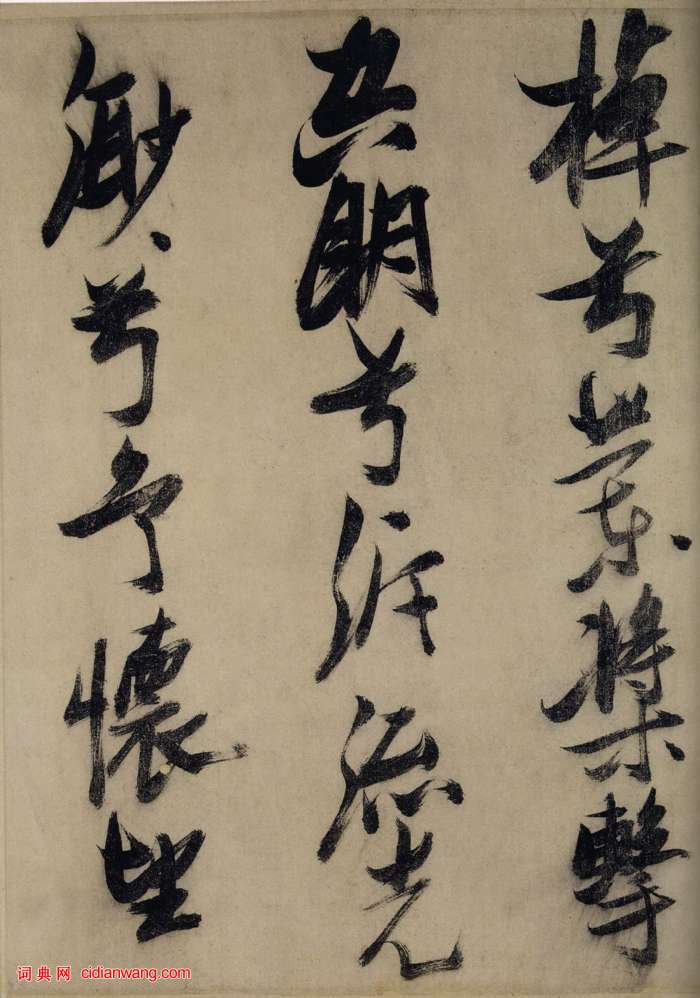 棹兮蘭槳擊
空明兮泝流光
渺、兮予懷望
词典网 cidianwang.com